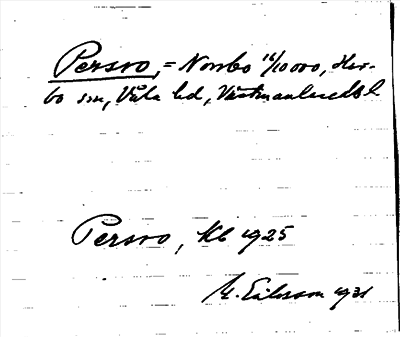 Persro, = Norrbo 16/10000, Har-
bo sn, Våla hd, Västmanlands l
Persro, Kb 1925
E. Eilarson 1931